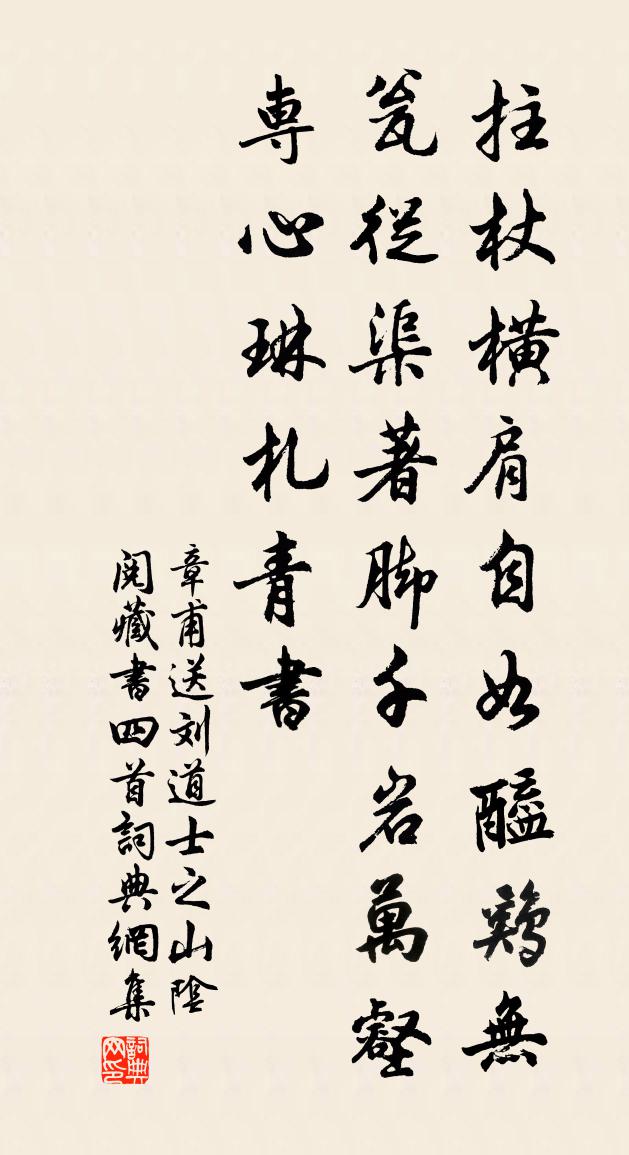 拄杖橫肩自如醯鷄無
瓮從渠著脚千岩萬壑
專心琳札青書
章甫送刘道士之山陰
閱藏書四首詞典網集
詞典网印